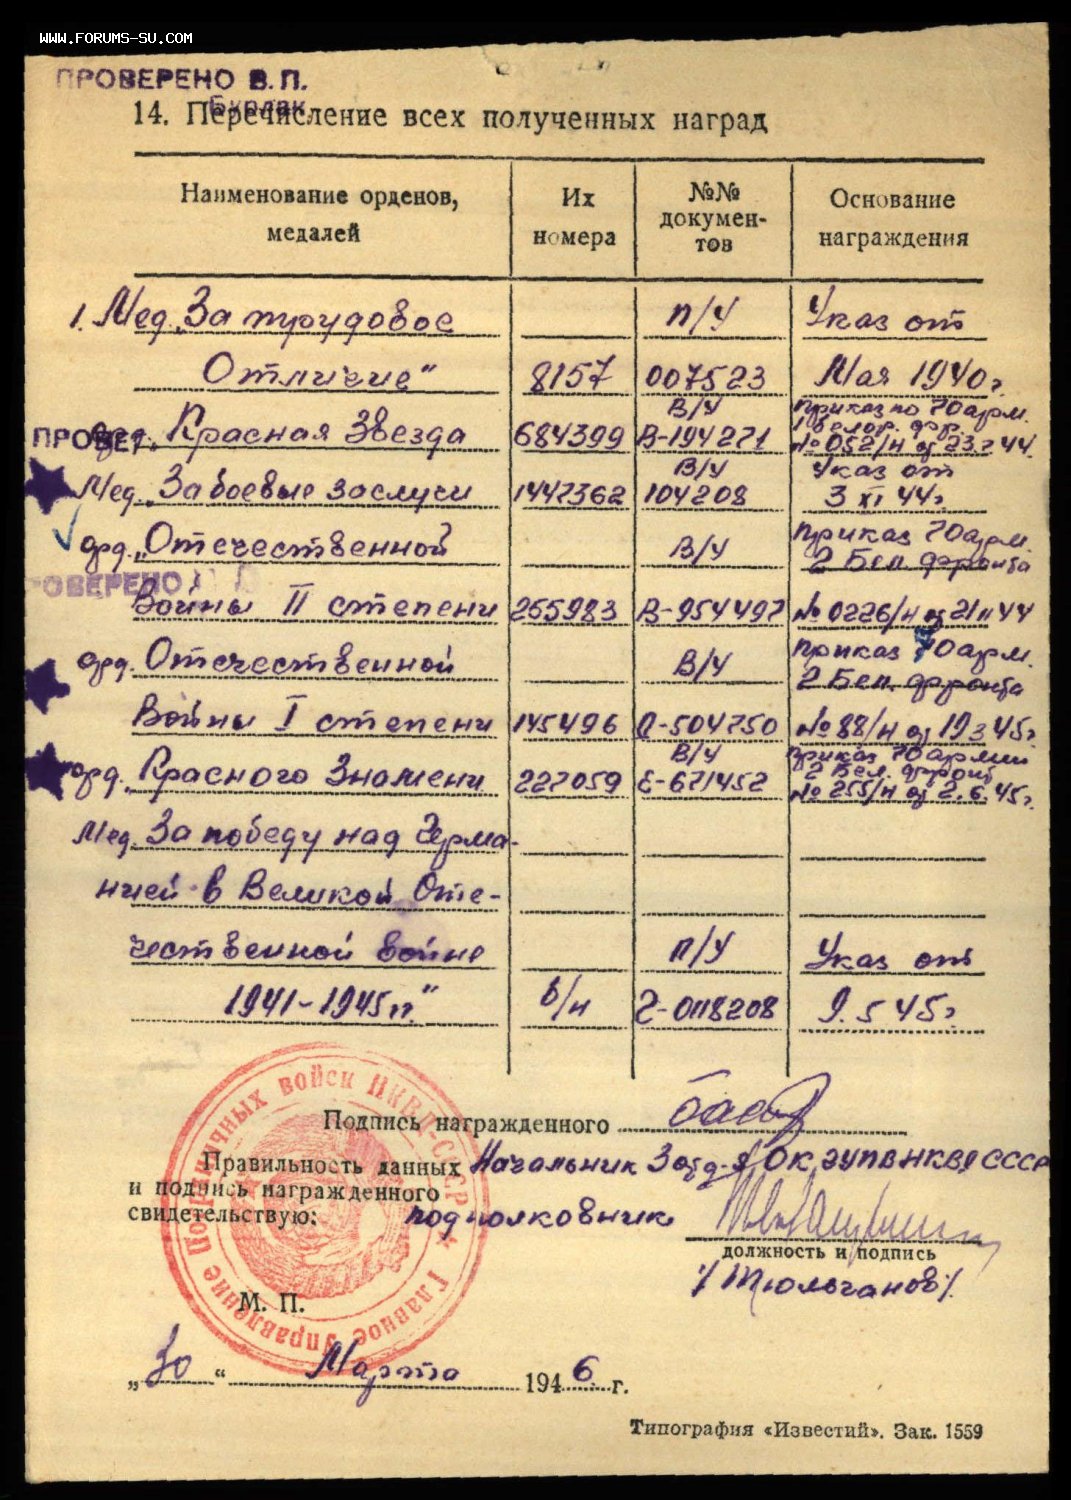 WWW.FORUMS-SU.COM
ПРОВЕРЕНО В.П.
Бурлак
14. Перечисление всех полученных наград
Наименование орденов, медалей
Их номера
№№ документов
Основание награждения
1. Мед. „За трудовое п/у Указ от
Отличие“ 8157 007523 Мая 1940 г.
В/у Приказ по 70 арм.
орд. „Красная Звезда 684399 В-194271 1 Белор. фр.
№ 052/н от 23. 2 44.
В/у Указ от
Мед. „За боевые заслуги 1447362 104208 3 XI 44г.
орд. „Отечественной В/у Приказ 70 арм.
2 Бел. фронта
ПРОВЕРЕНО
Войны II степени 255983 В-954497 № 0226/н от 21 11 44
орд. Отечественной В/у Приказ 70 арм.
2 Бел. фронта
Войны I степени 145496 504750 № 88/н от 19 3 45г.
В/у Приказ 70 армии
орд. „Красного Знамени 227059 Е-671452 2 Бел. фронт
№ 255/н от 2. 6. 45г.
Мед. За победу над Герма-
нией в Великой Оте-
чественной войне п/у Указ от
1941-1945 гг.“ б/н 0118208 9. 5 45г
Подпись награжденного
Правильность данных Начальник 3 отд-я ОК ГУПВ НКВД СССР
и подпись награжденного
свидетельствую: подполковник
должность и подпись
/Тюльганов/.
М. П.
Главное Управление Пограничных войск НКВД-СССР
„30“ Марта 1946 г.
Типография «Известий». Зак. 1559